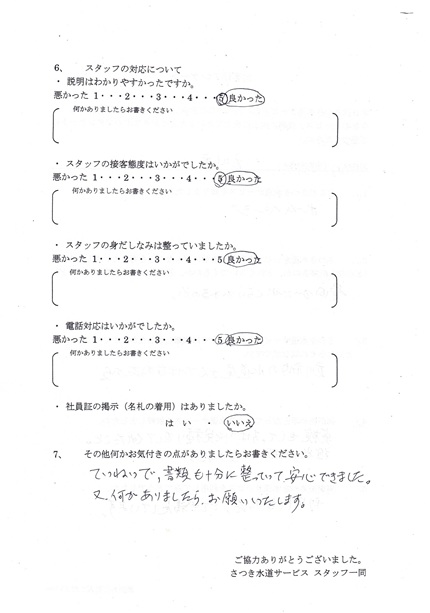 6、 スタッフの対応について
・ 説明はわかりやすかったですか。
悪かった 1・・・2・・・3・・・4・・・5 良かった
何かありましたらお書きください
・ スタッフの接客態度はいかがでしたか。
悪かった 1・・・2・・・3・・・4・・・5 良かった
何かありましたらお書きください
・ スタッフの身だしなみは整っていましたか。
悪かった 1・・・2・・・3・・・4・・・5 良かった
何かありましたらお書きください
・ 電話対応はいかがでしたか。
悪かった 1・・・2・・・3・・・4・・・5 良かった
何かありましたらお書きください
・ 社員証の掲示（名札の着用）はありましたか。
は い ・ いいえ
7、 その他何かお気付きの点がありましたらお書きください。
ていねいで、書類も十分に整っていて安心できました。
又、何かありましたら、お願いいたします。
ご協力ありがとうございました。
さつき水道サービス スタッフ一同